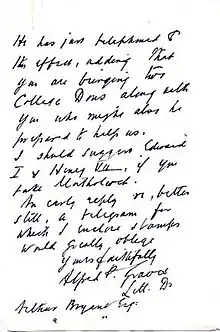 He has just telephoned to
its effect, adding that
you are bringing two
College Dons along with
you who might also be
prepared to help us.
I should suggest Edward
I & Henry VII, if you
take
An early reply or, better
still, a telegram for
which I enclose stamps
would greatly oblige
Yours faithfully
Alfred P. Graves
Litt. D.
Arthur Bryant Esq.
" "